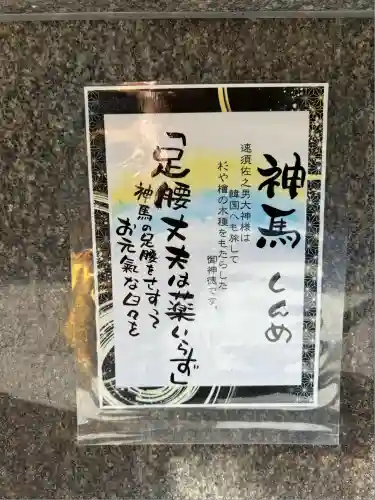 神馬 しんめ
速須佐之男大神様は
韓国へも旅して
杉や檜の木種をもたらした
御神徳です。
「足腰丈夫は薬いらず」
神馬の足腰をさすって
お元氣な日々を